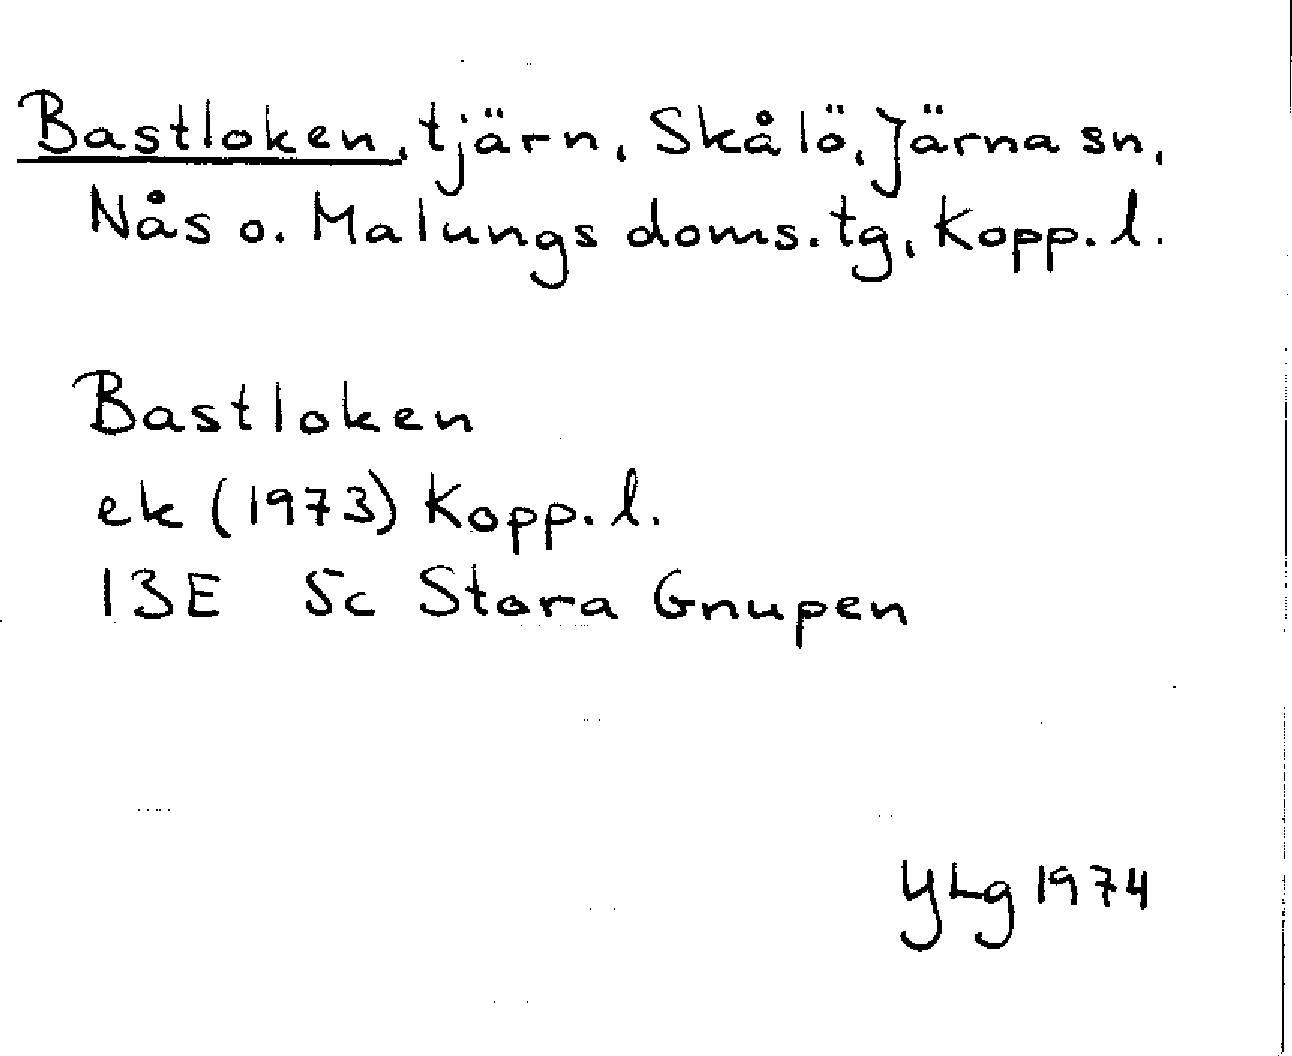 Bastloken, tjärn, Skålö, Järna sn,
Nås o. Malungs doms.tg, Kopp. l.
Bastloken
ek (1973) Kopp. l.
13E 5c Stora Gnupen
YLg 1974